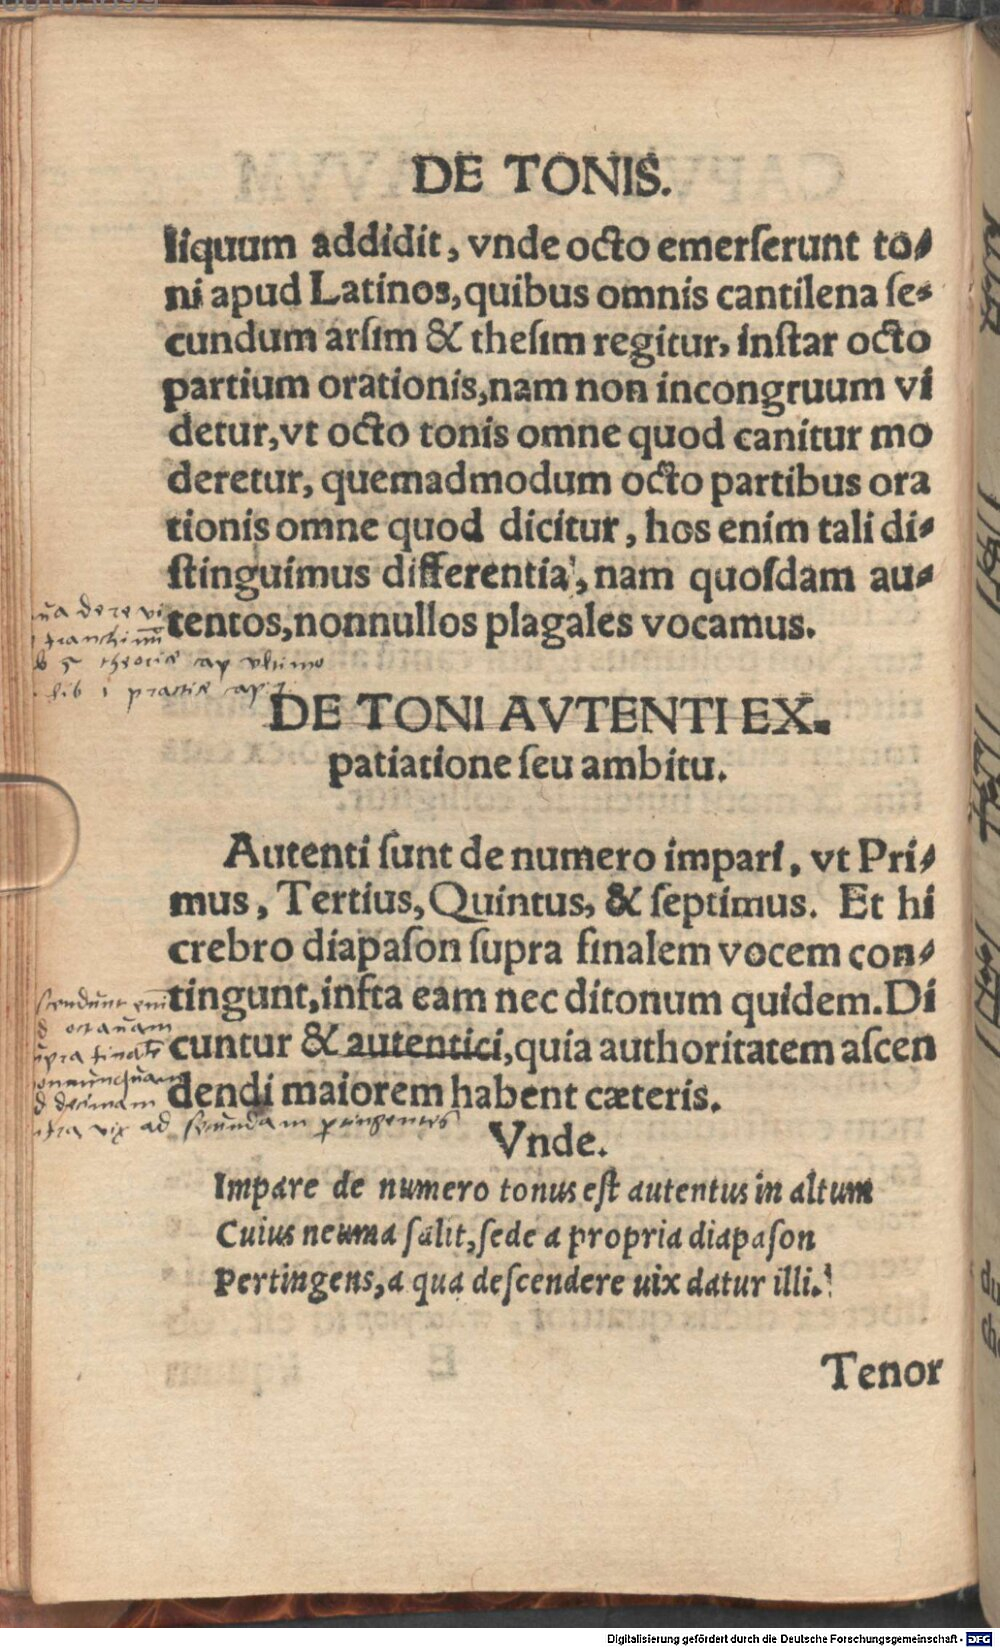 DE TONIS.
liquum addidit, vnde octo emerſerunt to-
ni apud Latinos, quibus omnis cantilena ſe-
cundum arſim & theſim regitur, inſtar octo
partium orationis, nam non incongruum vi
detur, vt octo tonis omne quod canitur mo
deretur, quemadmodum octo partibus ora
tionis omne quod dicitur, hos enim tali di-
ſtinguimus differentia, nam quoſdam au-
tentos, nonnullos plagales vocamus.
de re vi
franchinū
b 5 theoricæ cap vltimo
lib 1 practicæ cap 7
DE TONI AVTENTI EX-
patiatione ſeu ambitu.
Autenti ſunt de numero impari, vt Pri-
mus, Tertius, Quintus, & ſeptimus. Et hi
crebro diapaſon ſupra finalem vocem con-
tingunt, infra eam nec ditonum quidem. Di
cuntur & autentici, quia authoritatem aſcen
dendi maiorem habent cæteris.
ſcendunt enī
octauam
upra finalē
onnunquam
d decimam
nfra vix ad secundam pertingentes
Vnde.
Impare de numero tonus eſt autentus in altum
Cuius neuma ſalit, ſede a propria diapaſon
Pertingens, a qua deſcendere uix datur illi.
Tenor
Digitalisierung gefördert durch die Deutsche Forschungsgemeinschaft - DFG